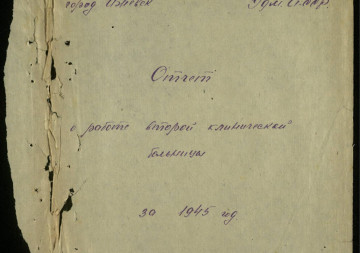 город Ижевск Удм. АССР.
Отчет
о работе второй клинической
больницы
за 1945 год